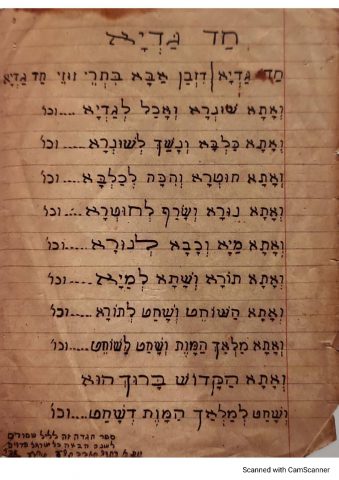 חַד גַּדְיָא
חַד גַּדְיָא דְזַבִּן אַבָּא בִּתְרֵי זוּזֵי חַד גַּדְיָא
וְאָתָא שׁוּנְרָא וְאָכַל לְגַדְיָא .....וכו'
וְאָתָא כַּלְבָּא וְנָשַׁךְ לְשׁוּנְרָא ....וכו'
וְאָתָא חוּטְרָא וְהִכָּה לְכַלְבָּא ....וכו'
וְאָתָא נוּרָא וְשָׂרַף לְחוּטְרָא ....וכו'
וְאָתָא מַיָּא וְכָבָא לְנוּרָא .....וכו'
וְאָתָא תוֹרָא וְשָׁתָא לְמַיָּא .....וכו'
וְאָתָא הַשּׁוֹחֵט וְשָׁחַט לְתוֹרָא .....וכו'
וְאָתָא מַלְאַךְ הַמָּוֶת וְשָׁחַט לַשּׁוֹחֵט .....וכו'
וְאָתָא הַקָּדוֹשׁ בָּרוּךְ הוּא
וְשָׁחַט לְמַלְאַךְ הַמָּוֶת דְשָׁחַט .....וכו'
ספר הגדה זה לליל שמורים
לשנה הבאה כל ישראל
Scanned with CamScanner